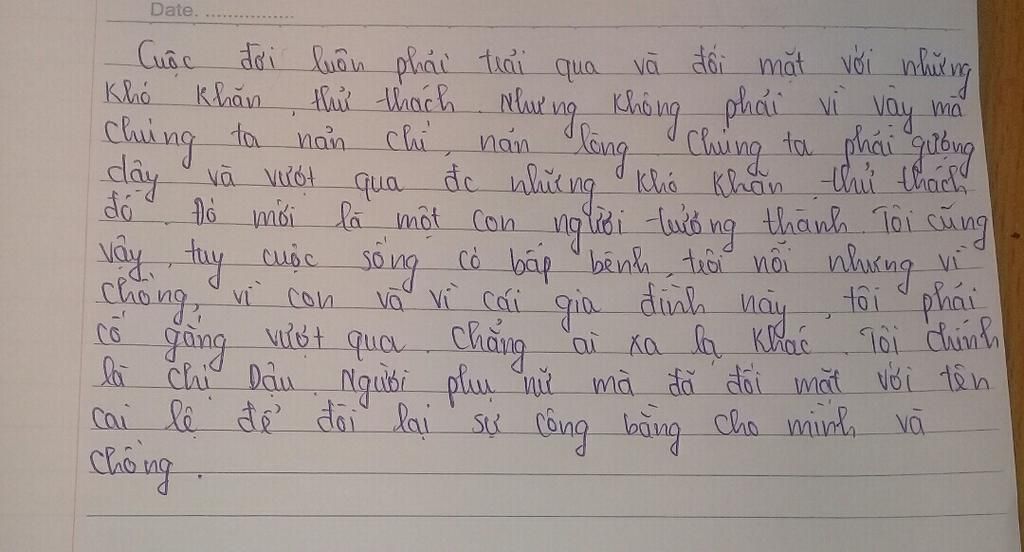 Date. ................
Cuộc đời luôn phải trải qua và đối mặt với những
khó khăn, thử thách. Nhưng không phải vì vậy mà
chúng ta nản chí, nản lòng. Chúng ta phải gượng
dậy và vượt qua đc những khó khăn thử thách
đó. Đó mới là một con người trưởng thành. Tôi cũng
vậy, tuy cuộc sống có bấp bênh, trôi nổi nhưng vì
chồng, vì con và vì cái gia đình này, tôi phải
cố gắng vượt qua. Chẳng ai xa lạ khác. Tôi chính
là chị Dậu. Người phụ nữ mà đã đối mặt với tên
cai lệ để đòi lại sự công bằng cho mình và
chồng.